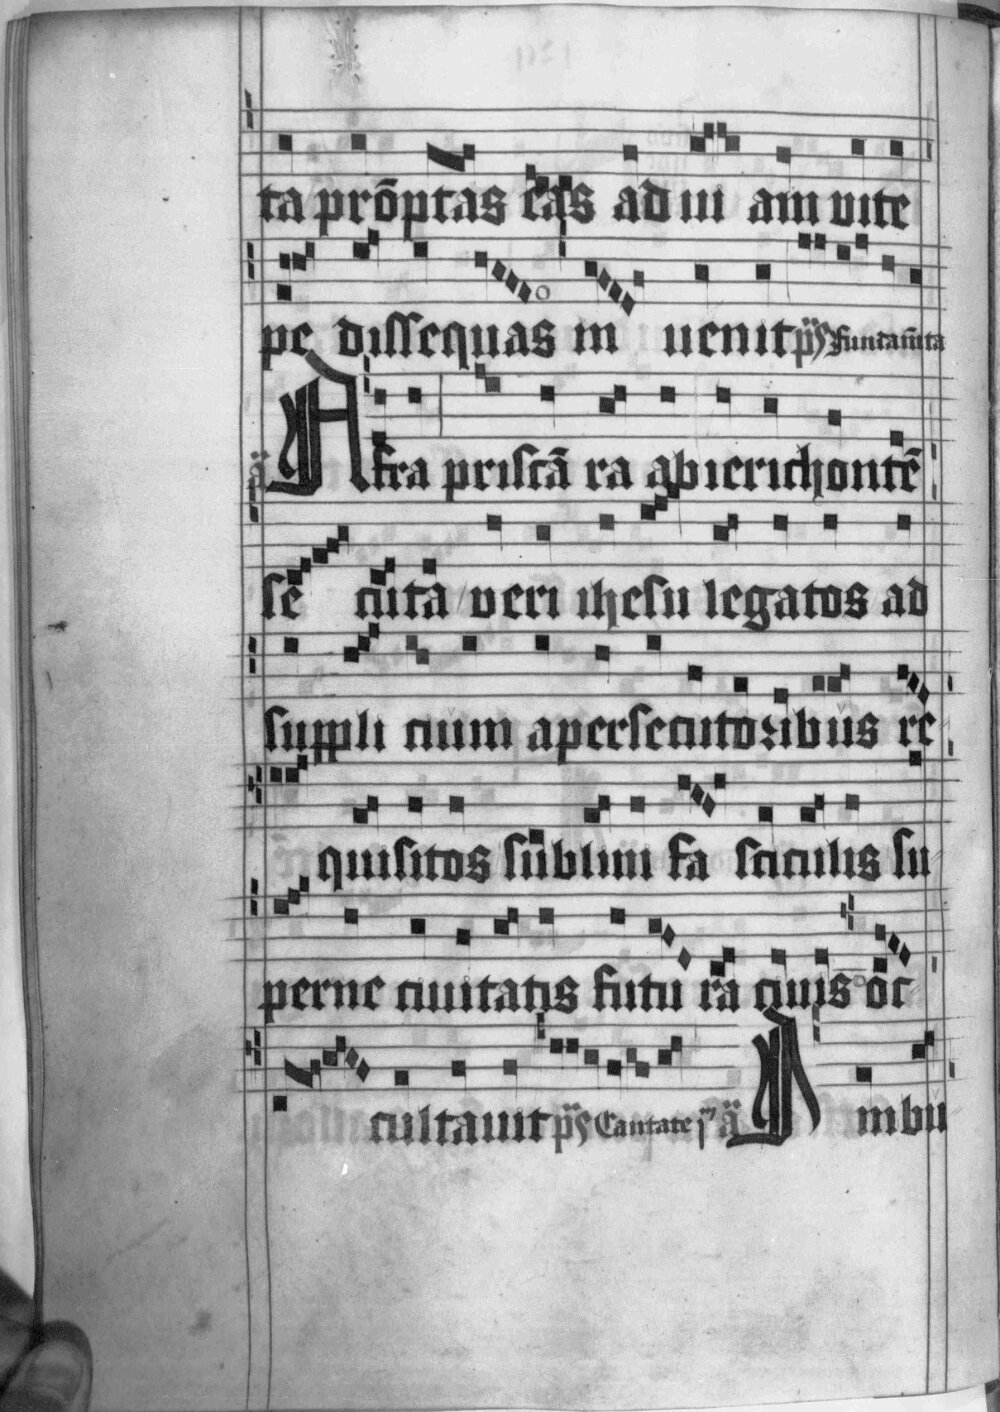 ta prōptas cās ad in am vite
pe dissequas in uenit ps Fundam̄ta
ā Afra priscā ra ab ierichontē
se cuta veri ihesu legatos ad
suppli cium a persecutoribus re
quisitos sublimi fa sciculis su
perne ciuitatis futu ra ciuis oc
cultauit ps Cantate ā A mbu